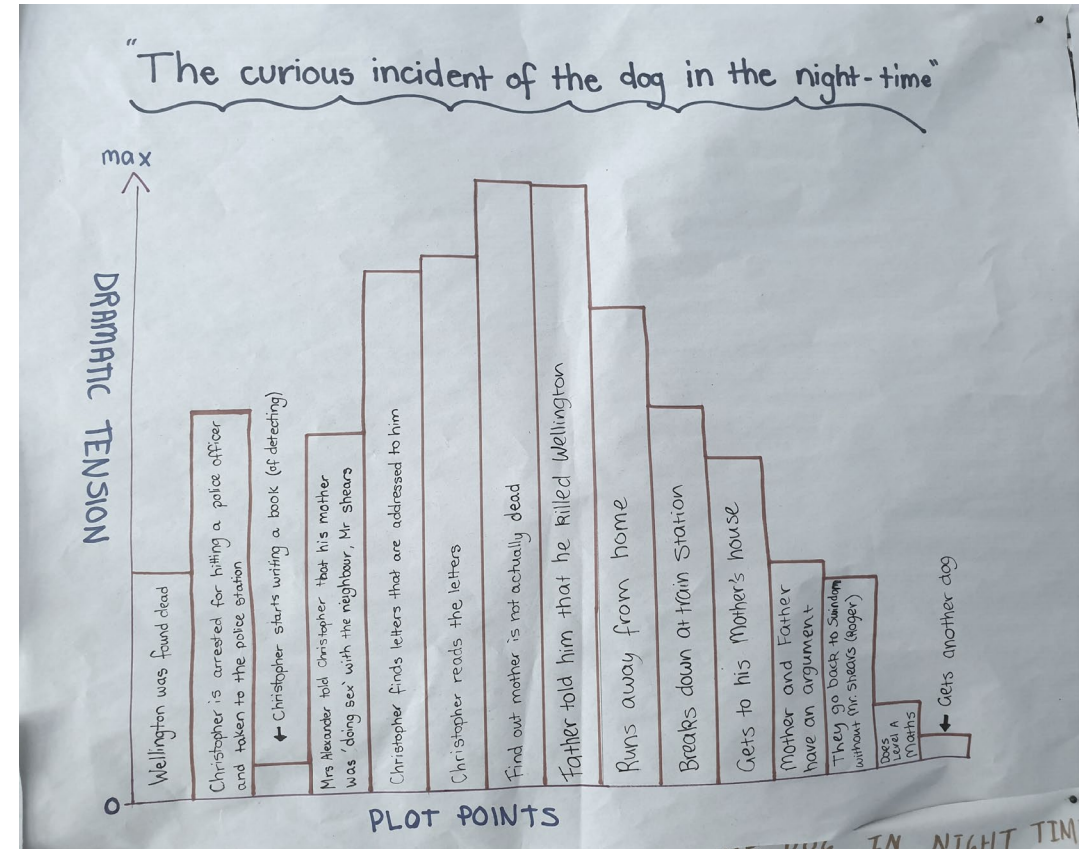 "The curious incident of the dog in the night-time"
max
DRAMATIC TENSION
0
Wellington was found dead
Christopher is arrested for hitting a police officer
and taken to the police station
← Christopher starts writing a book (of detecting)
Mrs Alexander told Christopher that his mother
was 'doing sex' with the neighbour, Mr shears
Christopher finds letters that are addressed to him
Christopher reads the letters
Find out mother is not actually dead
Father told him that he killed Wellington
Runs away from home
Breaks down at train station
Gets to his Mother's house
Mother and Father
have an argument
They go back to Swindon
without Mr. shears (Roger)
Does
Level A
Maths
← Gets another dog
PLOT POINTS
IN NIGHT TIM